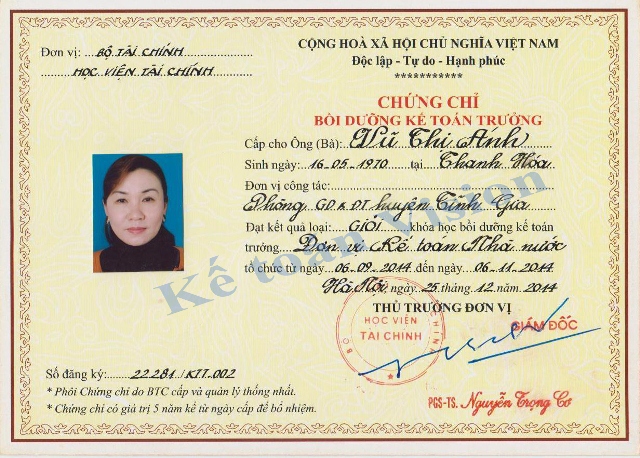 Đơn vị: BỘ TÀI CHÍNH
HỌC VIỆN TÀI CHÍNH
CỘNG HOÀ XÃ HỘI CHỦ NGHĨA VIỆT NAM
Độc lập - Tự do - Hạnh phúc
***********
CHỨNG CHỈ
BỒI DƯỠNG KẾ TOÁN TRƯỞNG
Cấp cho Ông (Bà): Vũ Thị Ánh
Sinh ngày: 16-05-1970 tại Thanh Hóa
Đơn vị công tác:
Phòng GD & ĐT huyện Tĩnh Gia
Đạt kết quả loại: Giỏi khóa học bồi dưỡng kế toán
trưởng Đơn vị Kế toán Nhà nước
tổ chức từ ngày 06-09-2014 đến ngày 06-11-2014
Hà Nội, ngày 25 tháng 12 năm 2014
THỦ TRƯỞNG ĐƠN VỊ
GIÁM ĐỐC
HỌC VIỆN
TÀI CHÍNH
Số đăng ký: 22281/KTT.002
* Phôi Chứng chỉ do BTC cấp và quản lý thống nhất.
* Chứng chỉ có giá trị 5 năm kể từ ngày cấp để bổ nhiệm.
PGS-TS. Nguyễn Trọng Cơ
Kế toán Vision